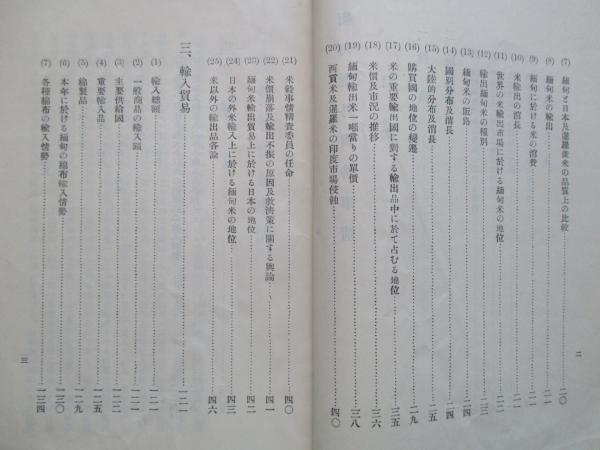 (7) 緬甸と日本及暹羅産米の品質上の比較……二〇
(8) 緬甸米の輸出……二一
(9) 緬甸に於ける米の消費……二一
(10) 米輸出の消長……二一
(11) 世界の米輸出市場に於ける緬甸米の地位……二二
(12) 輸出緬甸米の種別……二三
(13) 緬甸米の販路……二四
(14) 國別分布及消長……二四
(15) 大陸的分布及消長……二五
(16) 購買國の地位の變遷……二九
(17) 米の重要輸出國に對する輸出品中に於て占むる地位……三五
(18) 米價及市況の推移……三六
(19) 緬甸輸出米一噸當りの單價……三八
(20) 西貢米及暹羅米の印度市場侵蝕……四〇
二
(21) 米穀事情精査委員の任命……四〇
(22) 米價崩落及輸出不振の原因及救濟策に關する輿論……四一
(23) 緬甸米輸出貿易上に於ける日本の地位……四二
(24) 日本の外米輸入上に於ける緬甸米の地位……四三
(25) 米以外の輸出品各論……四六
三、輸入貿易……一二一
(1) 輸入總額……一二一
(2) 一般商品の輸入額……一二一
(3) 主要供給國……一二二
(4) 重要輸入品……一二五
(5) 綿製品……一二九
(6) 本年に於ける緬甸の綿布輸入情勢……一三〇
(7) 各種綿布の輸入情勢……一三四
三